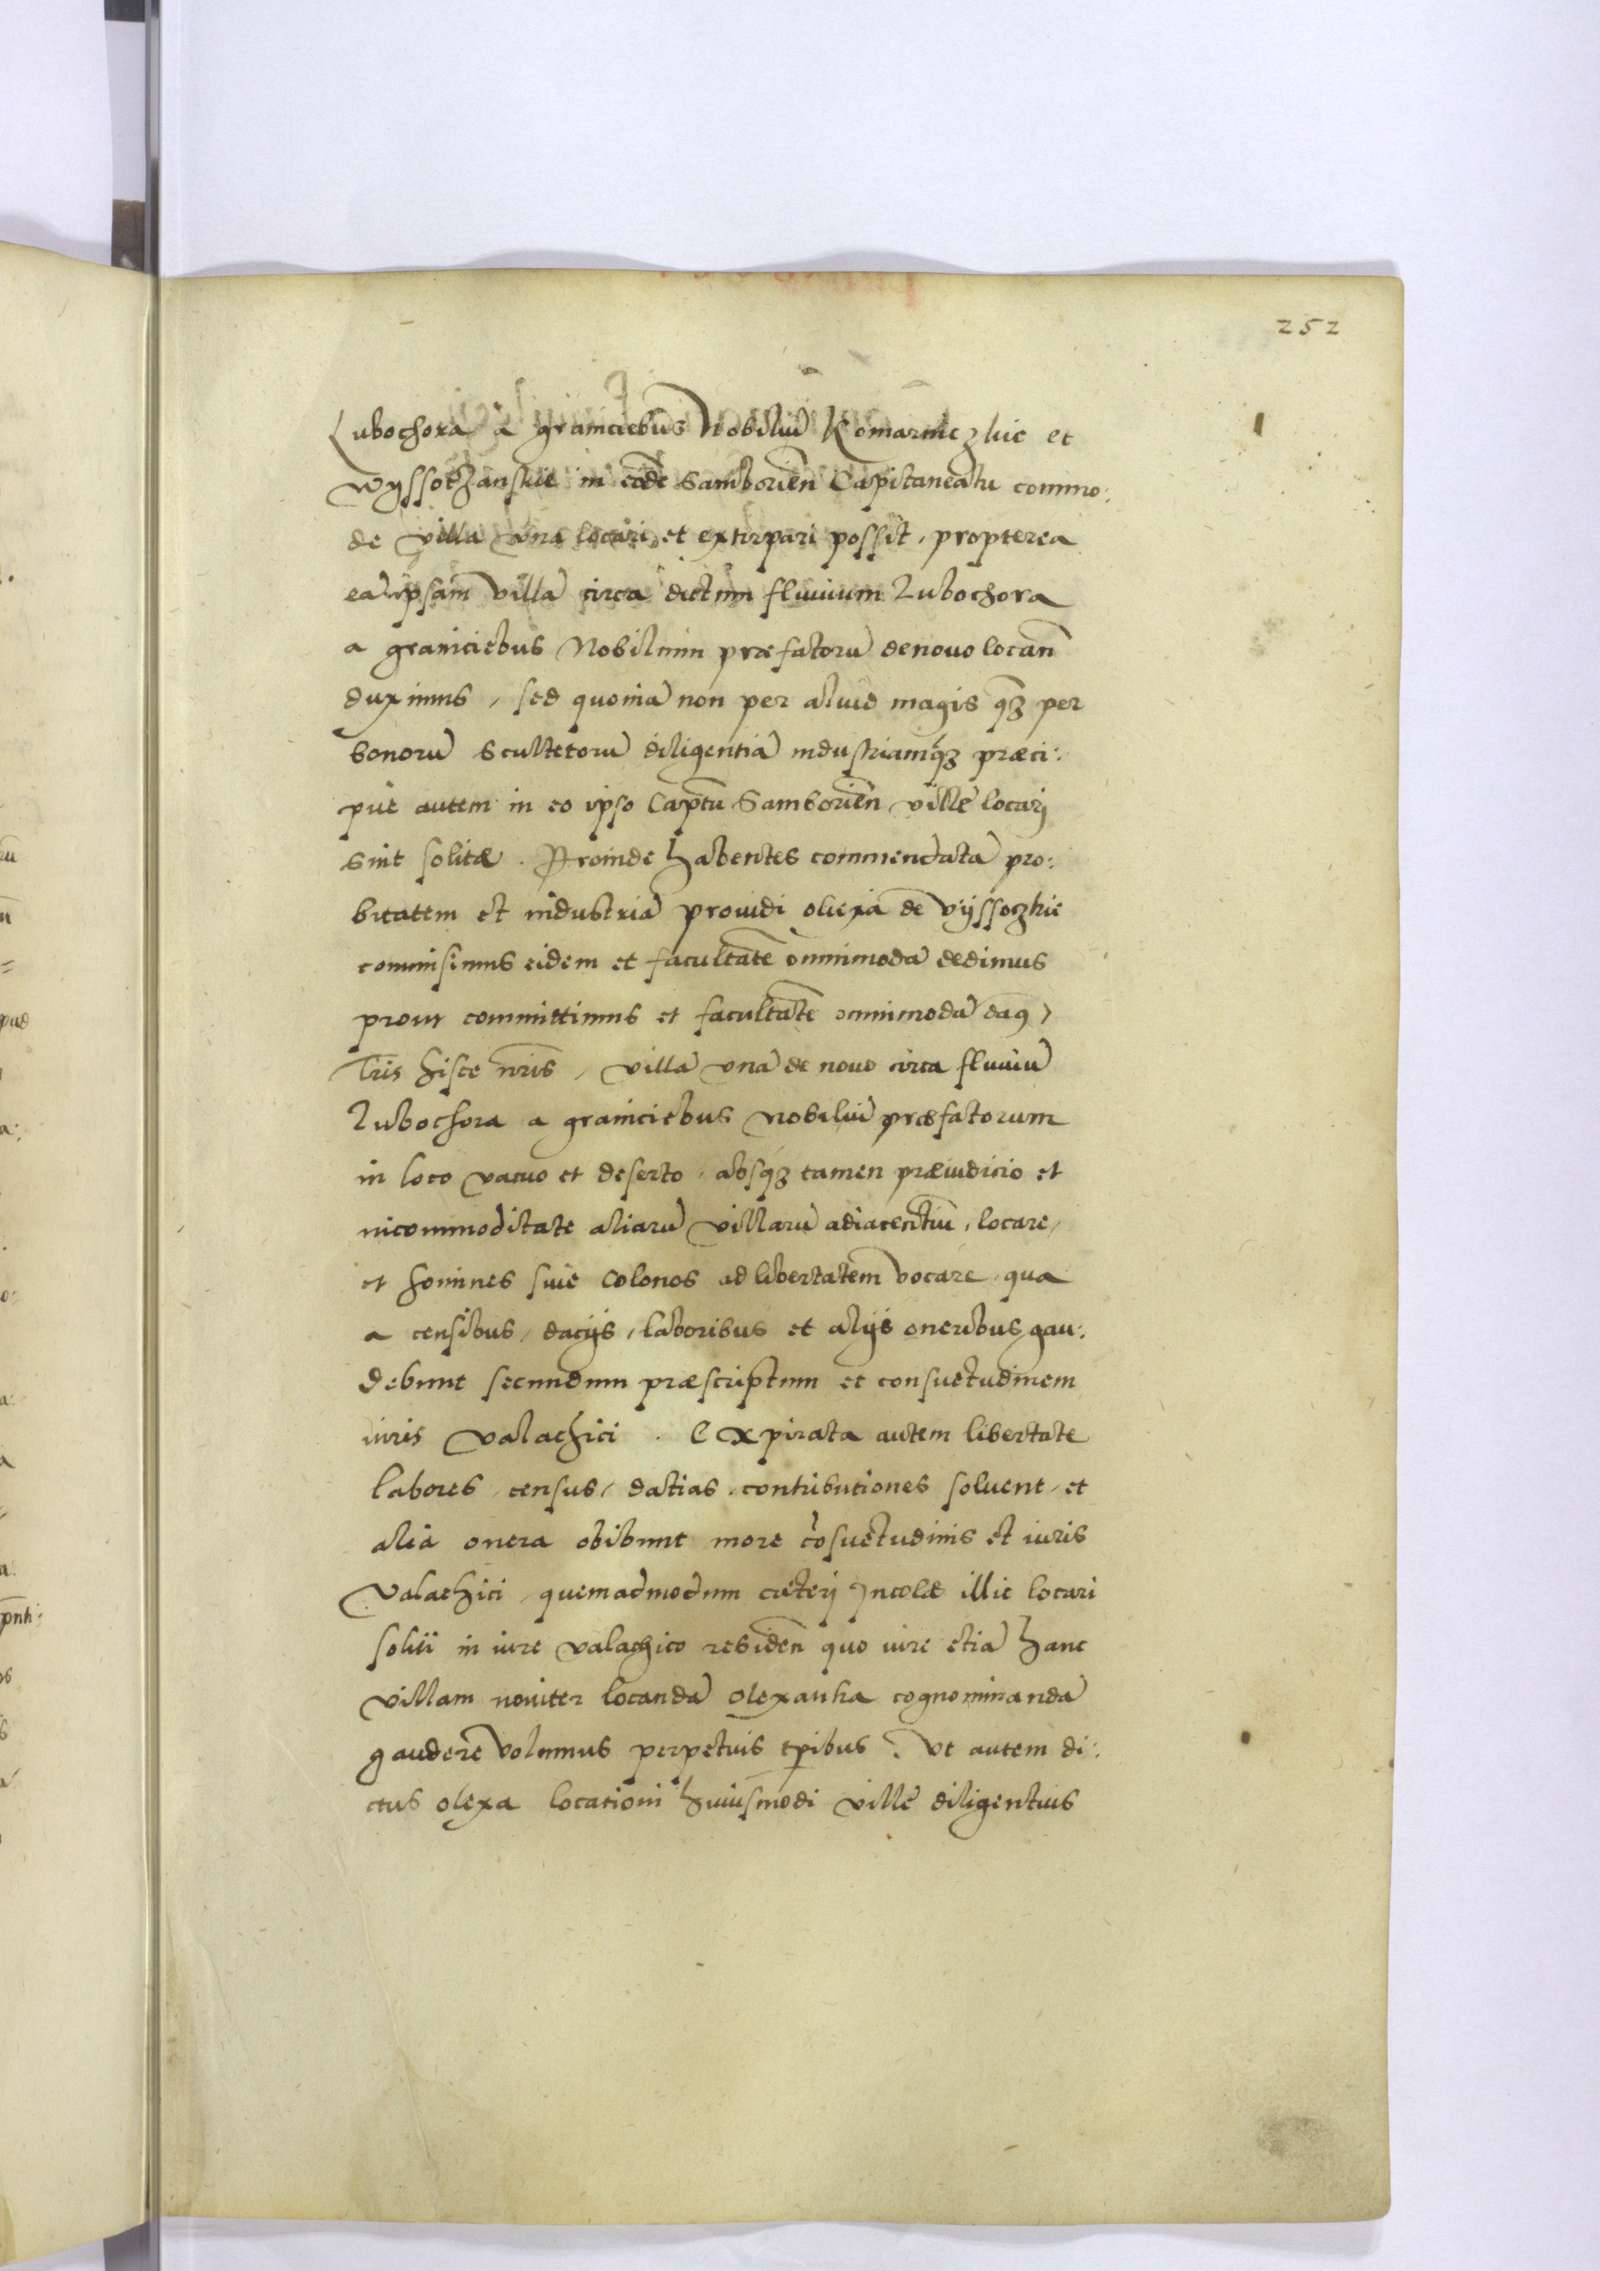 252
Lubochora a graniciebus Nobiliũ Komarniczkie et
Wyssoczanskie in eodē Samborieñ Capitaneatu commo:
de villa vna locari et extirpari possit, propterea
eā ipsam villā circa dictum fluuium Lubochora
a graniciebus Nobilium præfatorũ denouo locañ
duximus, sed quoniā non per aliud magis q̃ꝫ per
bonorũ scultetorũ diligentiā industriamq̃ꝫ præci:
pue autem in eo ipso Captũ Samborieñ ville locari
sint solitæ. Proinde habentes commendatā pro:
bitatem et industriā prouidi olexā de Vyssoczkie
commisimus eidem et facultatē omnimodā dedimus
prout committimus et facultatē omnimodā damꝰ
Lr̃is hisce nr̃is, villā vnā de nouo circa fluuiũ
Lubochora a graniciebus nobiliũ præfatorum
in loco vacuo et deserto, absqꝫ tamen præiudicio et
incommoditate aliarũ villarũ adiacentiũ, locare,
et homines siue colonos ad libertatem vocare, qua
a censibus, dacijs, laboribus et alijs oneribus gau:
debunt secundum præscriptum et consuetudinem
iuris valachici. Expirata autem libertate
labores, census, datias, contributiones soluent, et
alia onera obibunt more cõsuetudinis et iuris
Valachici, quemadmodum cæteri Incolæ illic locari
soliti in iure valachico resideñ quo iure etiā hanc
villam nouiter locandā olexanka cognominandā
gaudere volumus perpetuis tp̃ibus. Vt autem di:
ctus olexa locationi huiusmodi ville diligentius